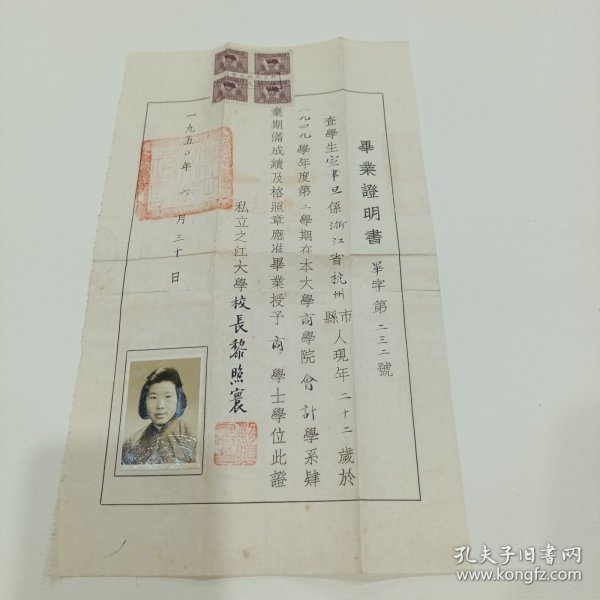 畢業證明書 畢字第二三二號
查學生宣 旦係浙江省杭州市縣人現年二十二歲於
一九四九學年度第二學期在本大學商學院會計學系肄
業期滿成績及格照章應准畢業授予商學士學位此證
私立之江大學校長黎照寰
一九五〇年六月三十日
孔夫子旧书网
www.kongfz.com